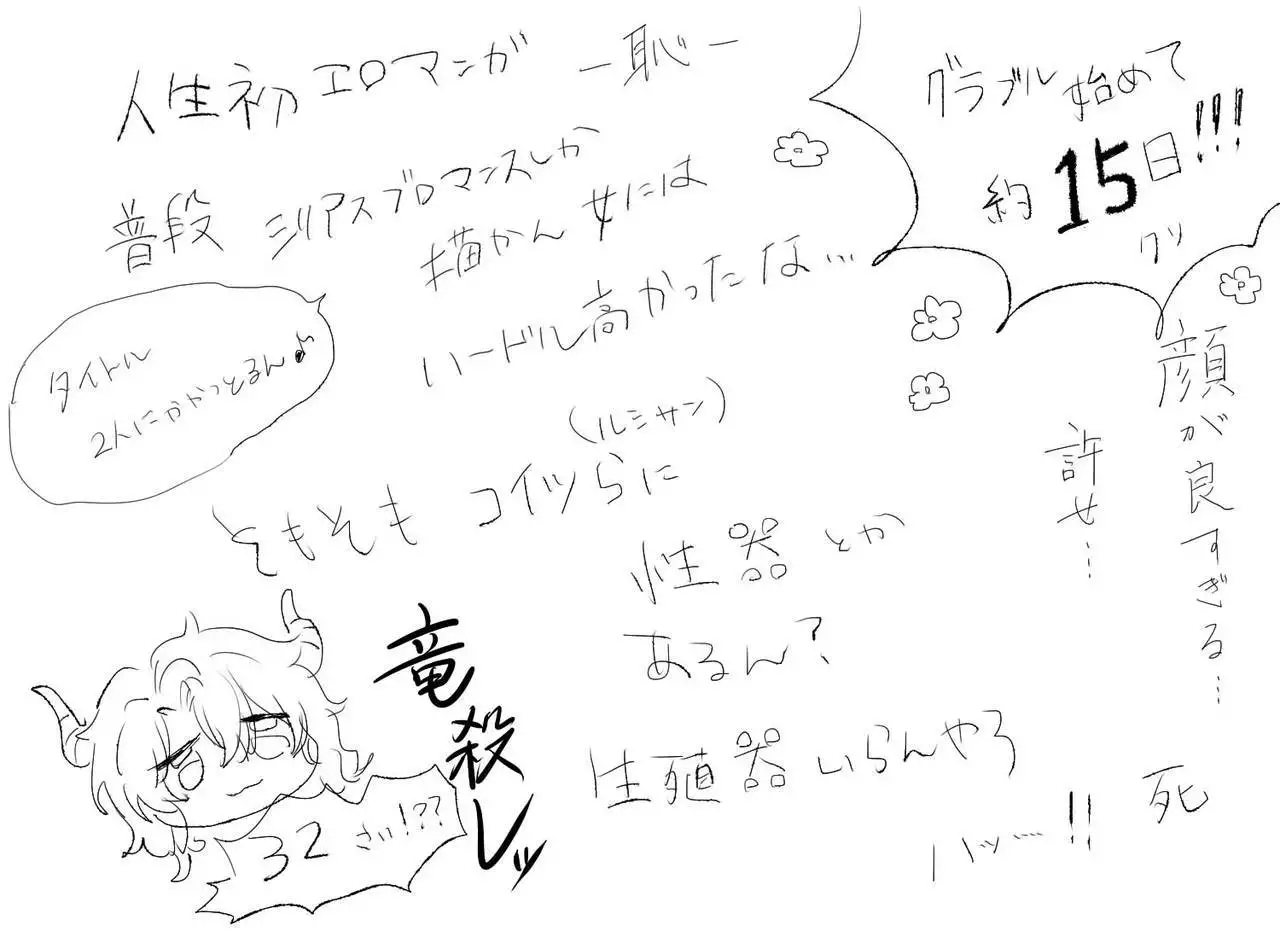 人生初エロマンガ ー恥ー
普段 シリアスブロマンスしか
描かん女には
ハードル高かったな…
タイトル
2人にかかっとるん♪
(ルシサン)
そもそも コイツらに
性器とか
あるん?
生殖器いらんやろ
ハッ……!!
グラブル始めて
約15日!!!
顔が良すぎる…
許せ…
死
竜殺しッ
32さい!??